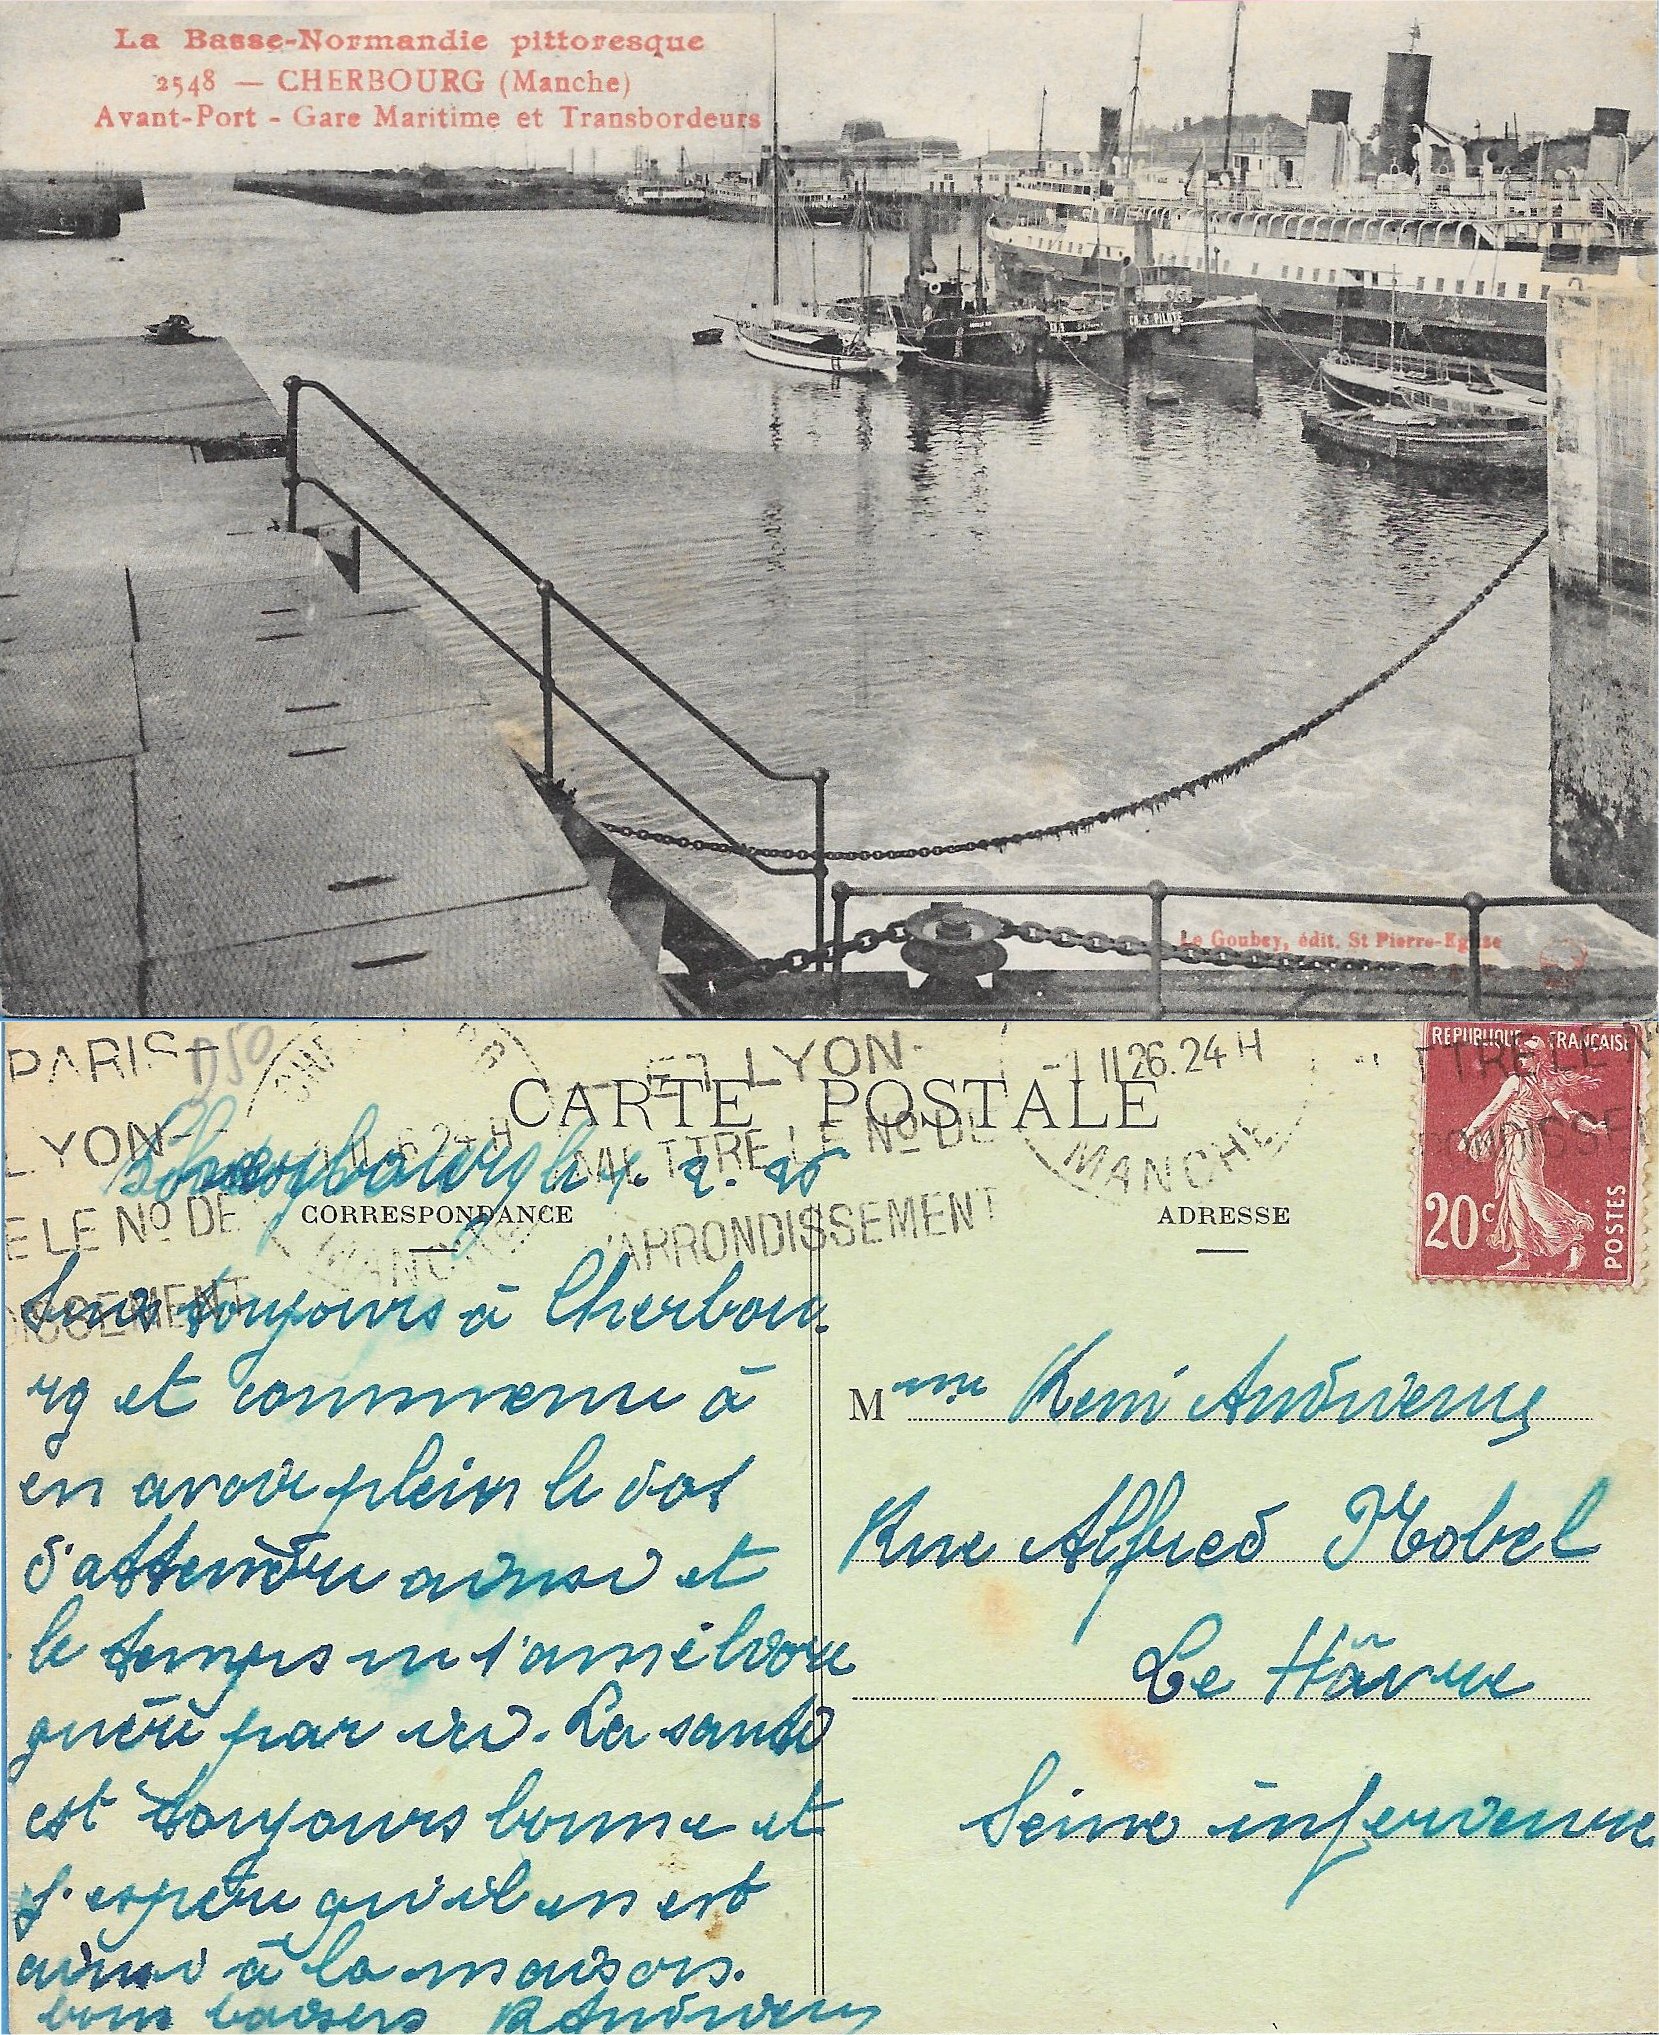 La Basse-Normandie pittoresque
2548 — CHERBOURG (Manche)
Avant-Port - Gare Maritime et Transbordeurs
CH. 3 PILOTE
Le Goubey, édit. St Pierre-Eglise
PARIS-
D50
ET LYON-
-1 II 26. 24 H
METTRE LE
REPUBLIQUE FRANÇAISE
CARTE POSTALE
LYON-
METTRE LE No DE
MANCHE
Cherbourg le 1. 2. 26
E LE No DE
CORRESPONDANCE
L'ARRONDISSEMENT
ADRESSE
20c
POSTES
MANCHE
ISSEMENT
Suis toujours à Cherbou-
rg et commence à
en avoir plein le dos
d'attendre ainsi et
le temps ne s'améliore
guère par ici. La santé
est toujours bonne et
j'espère qu'il en est
ainsi à la maison.
bons baisers R
Mme
Rue Alfred Nobel
Le Hâvre
Seine inferieure